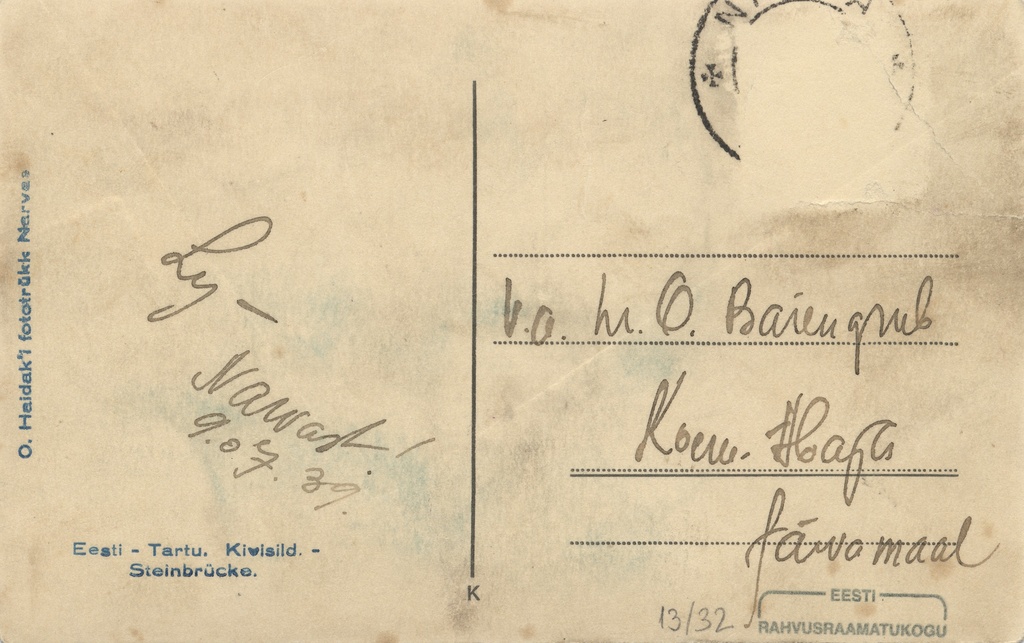 O. Haidak'i fototrükk Narvas
Ly -
9.07.39.
Eesti - Tartu. Kivisild. -
Steinbrücke.
K
N
V.a. hr. O. Bärengrub
Järvamaal
13/32
EESTI
RAHVUSRAAMATUKOGU